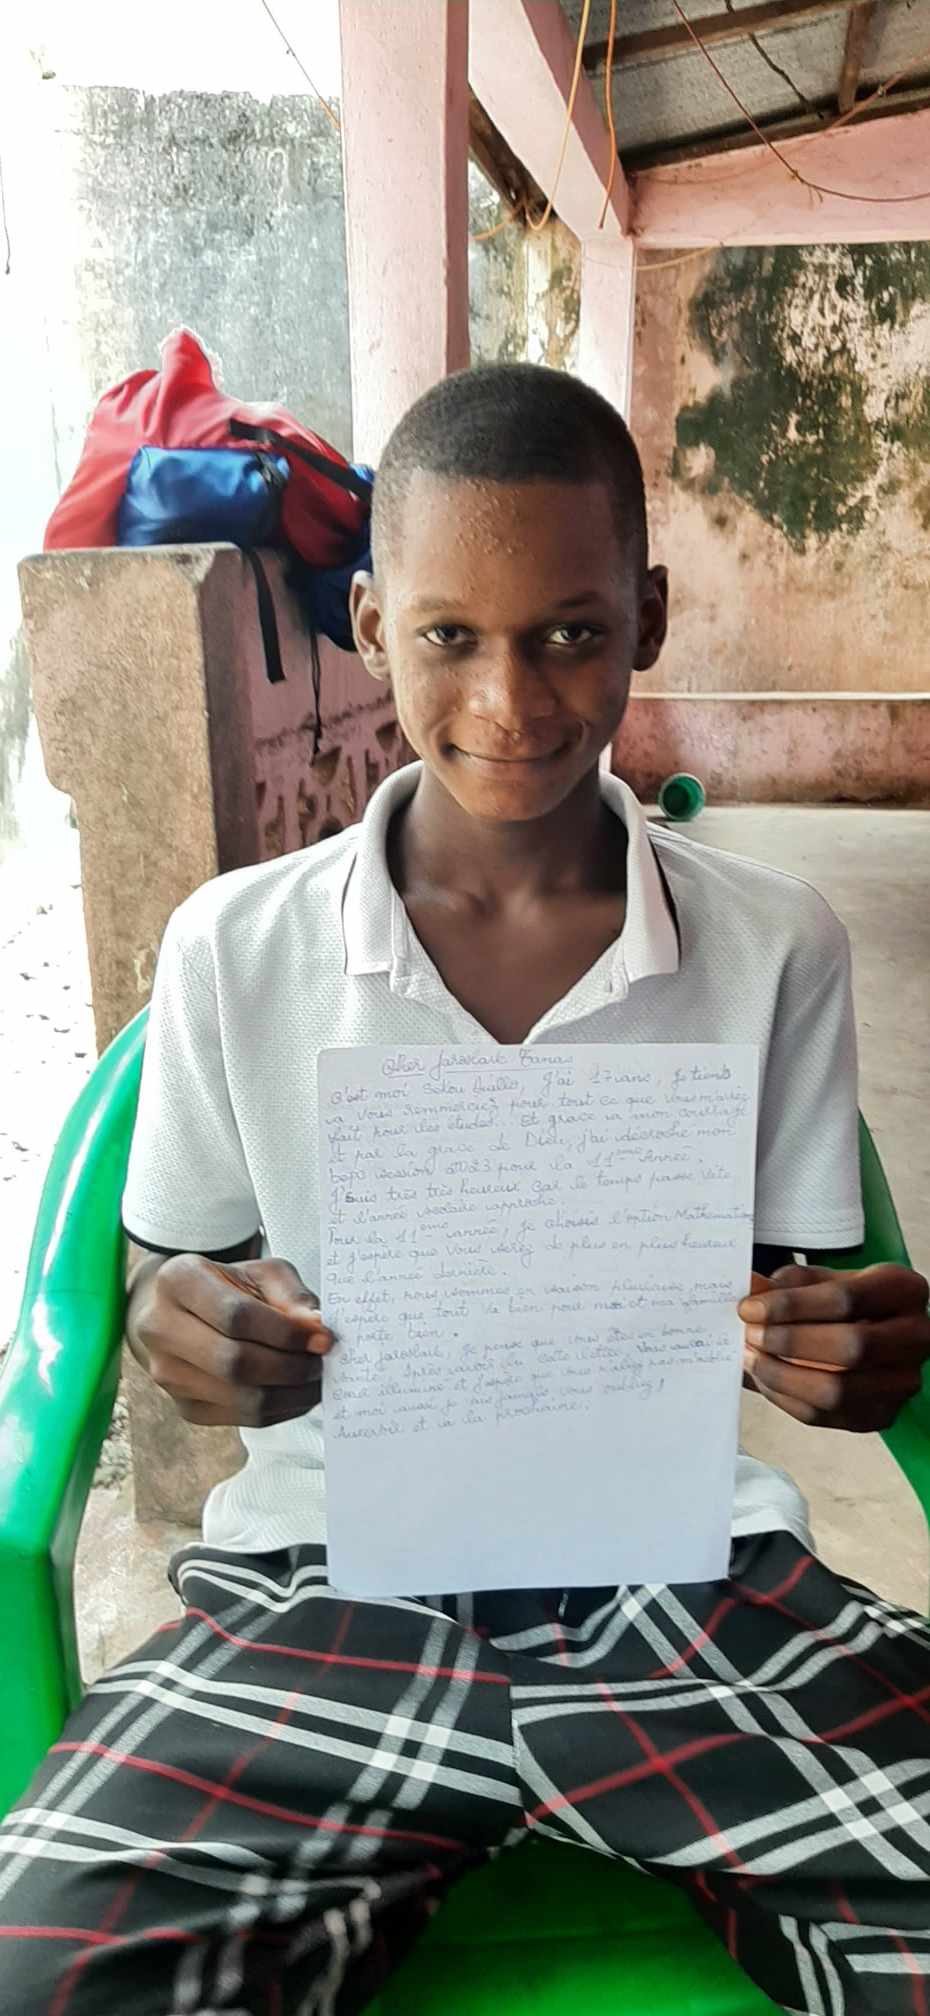 Cher Jaroslark Tanas
C'est moi Selou Diallo, J'ai 17 ans, Je tiens
à vous remmerciez pour tout ce que vous m'aviez
fait pour les études. Et grace à mon courrage
et par la grace de Dieu, j'ai décroché mon
bepc session 2023 pour la 11ème Année.
J'suis très très heureux Car le temps passe vite
et l'année scolaire approche.
Pour la 11ème année, Je choisis l'option Mathématiq
et J'espère que vous serez de plus en plus heureux
que l'année dernière.
En effet, nous sommes en saison pluvieuse, mais
J'espère que tout va bien pour et ma famille
porte bien.
Cher Jaroslark, Je pense que vous êtes en bonne
santé, Après avoir lu cette lettre, vous
illuminé et J'espère que vous
et moi aussi je jamais vous oubliez!
Aurevoir et à la prochaine!